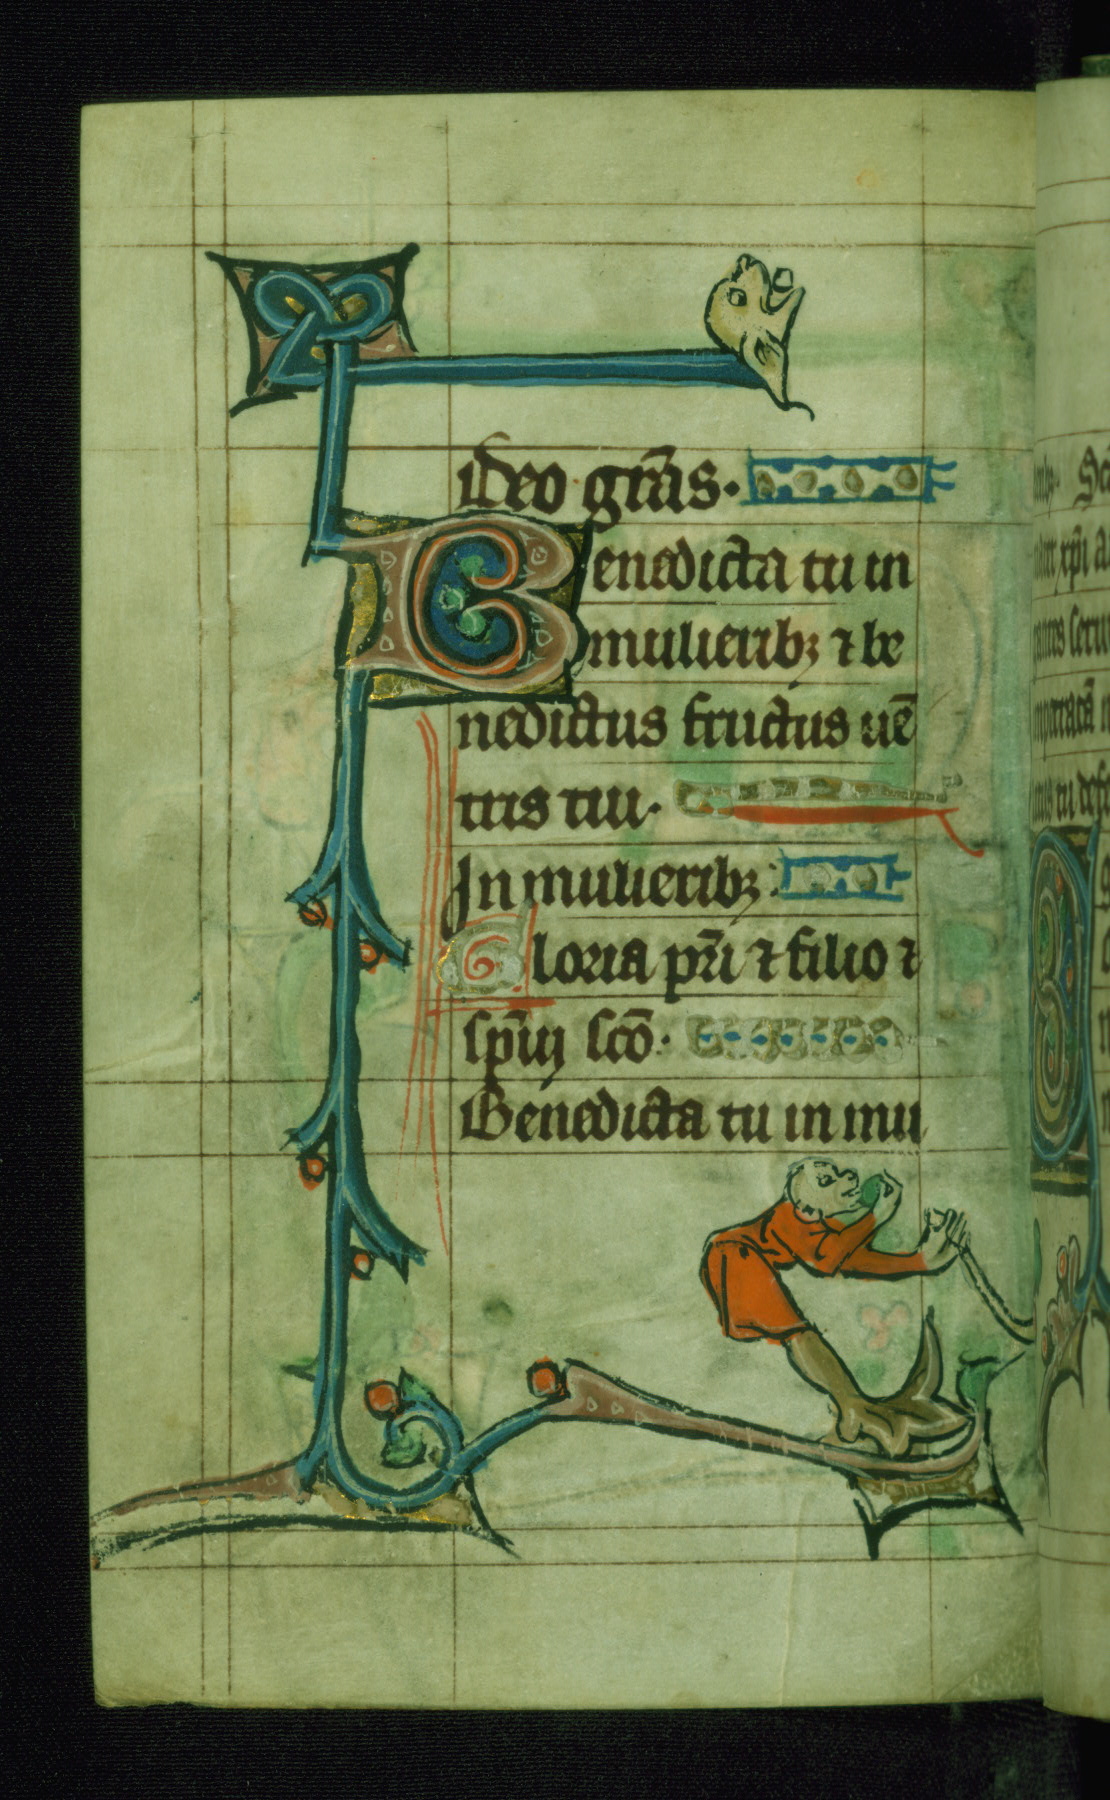 ideo grãs.
Benedicta tu in
mulieribꝫ ⁊ be
nedictus fructus uẽ
tris tui.
In mulieribꝫ:
Gloria pr̃i ⁊ filio ⁊
sp̃ui sc̃o.
Benedicta tu in mu